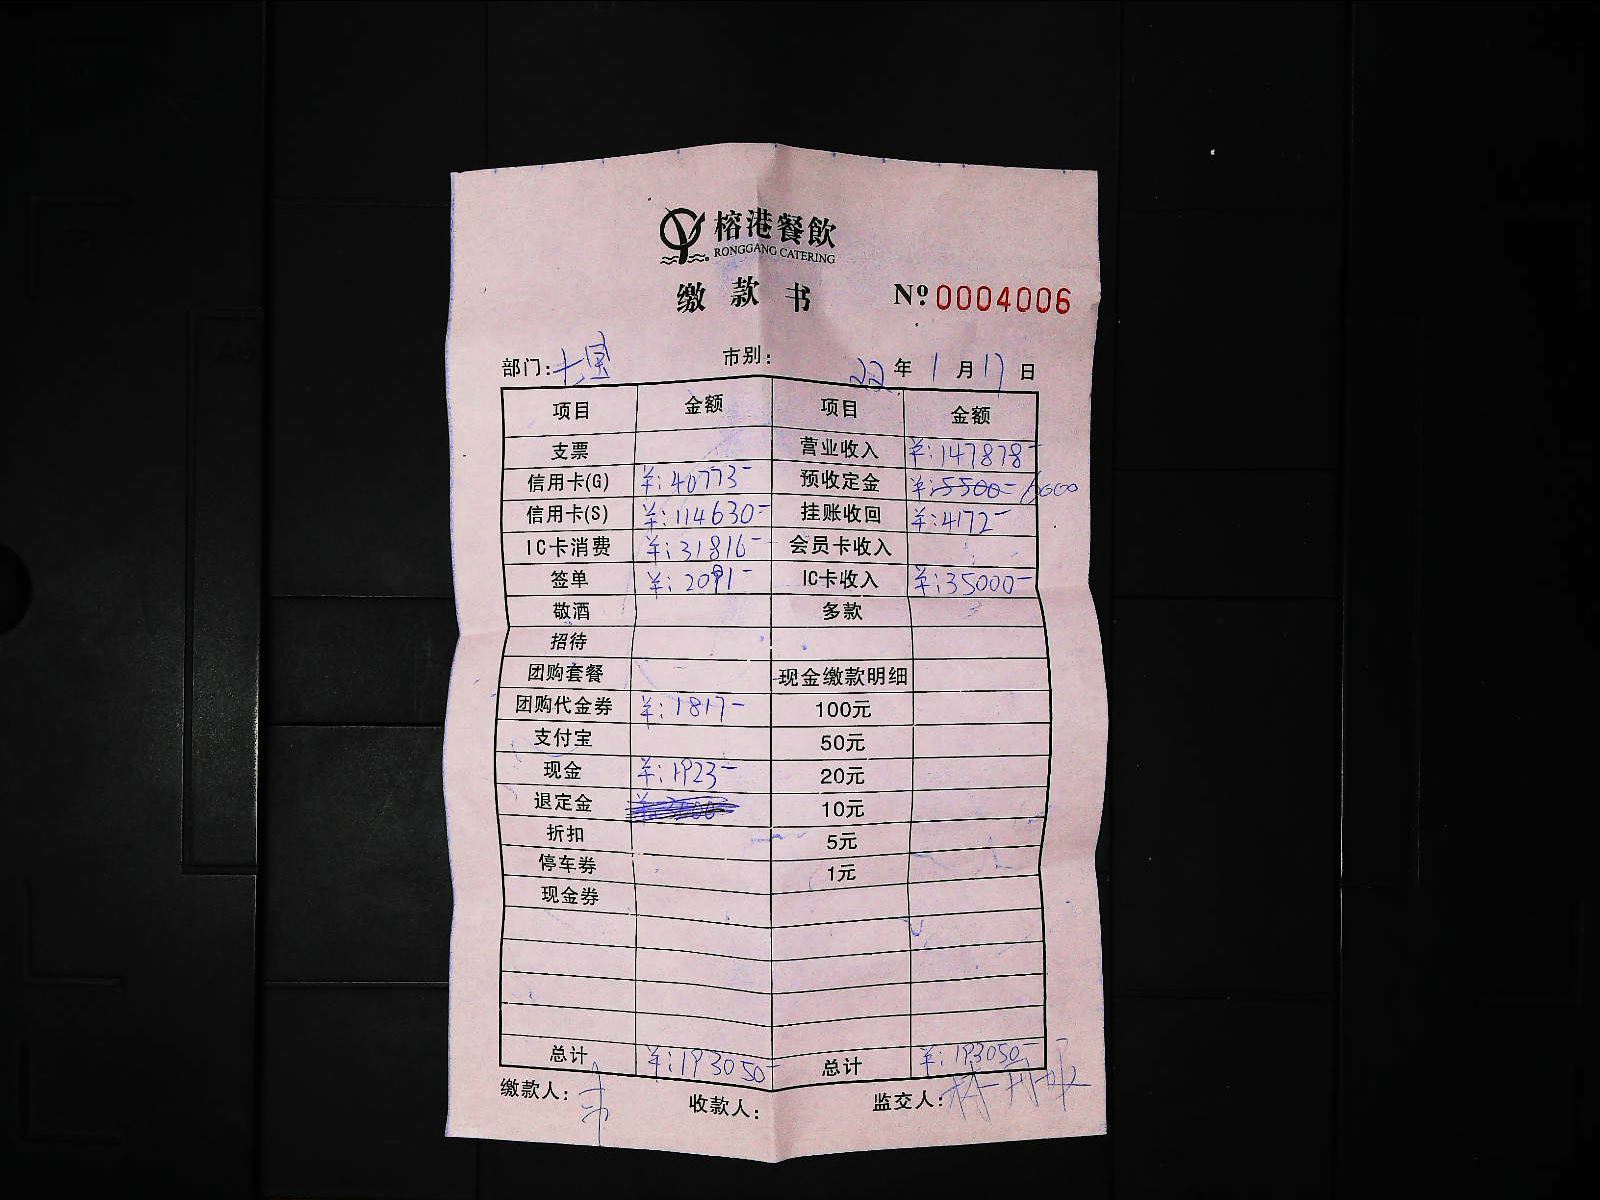 榕港餐飲
RONGGANG CATERING
缴款书 Nº 0004006
部门:七宝 市别: 22年1月17日
项目 金额 项目 金额
支票 营业收入 ¥:147878-
信用卡(G) ¥:40773- 预收定金 ¥:5500- 6000
信用卡(S) ¥:114630- 挂账收回 ¥:4172-
IC卡消费 ¥:31816- 会员卡收入
签单 ¥:2091- IC卡收入 ¥:35000-
敬酒 多款
招待
团购套餐 现金缴款明细
团购代金券 ¥:1817- 100元
支付宝 50元
现金 ¥:1923- 20元
退定金 10元
折扣 5元
停车券 1元
现金券
总计 ¥:193050- 总计 ¥:193050-
缴款人: 收款人: 监交人: